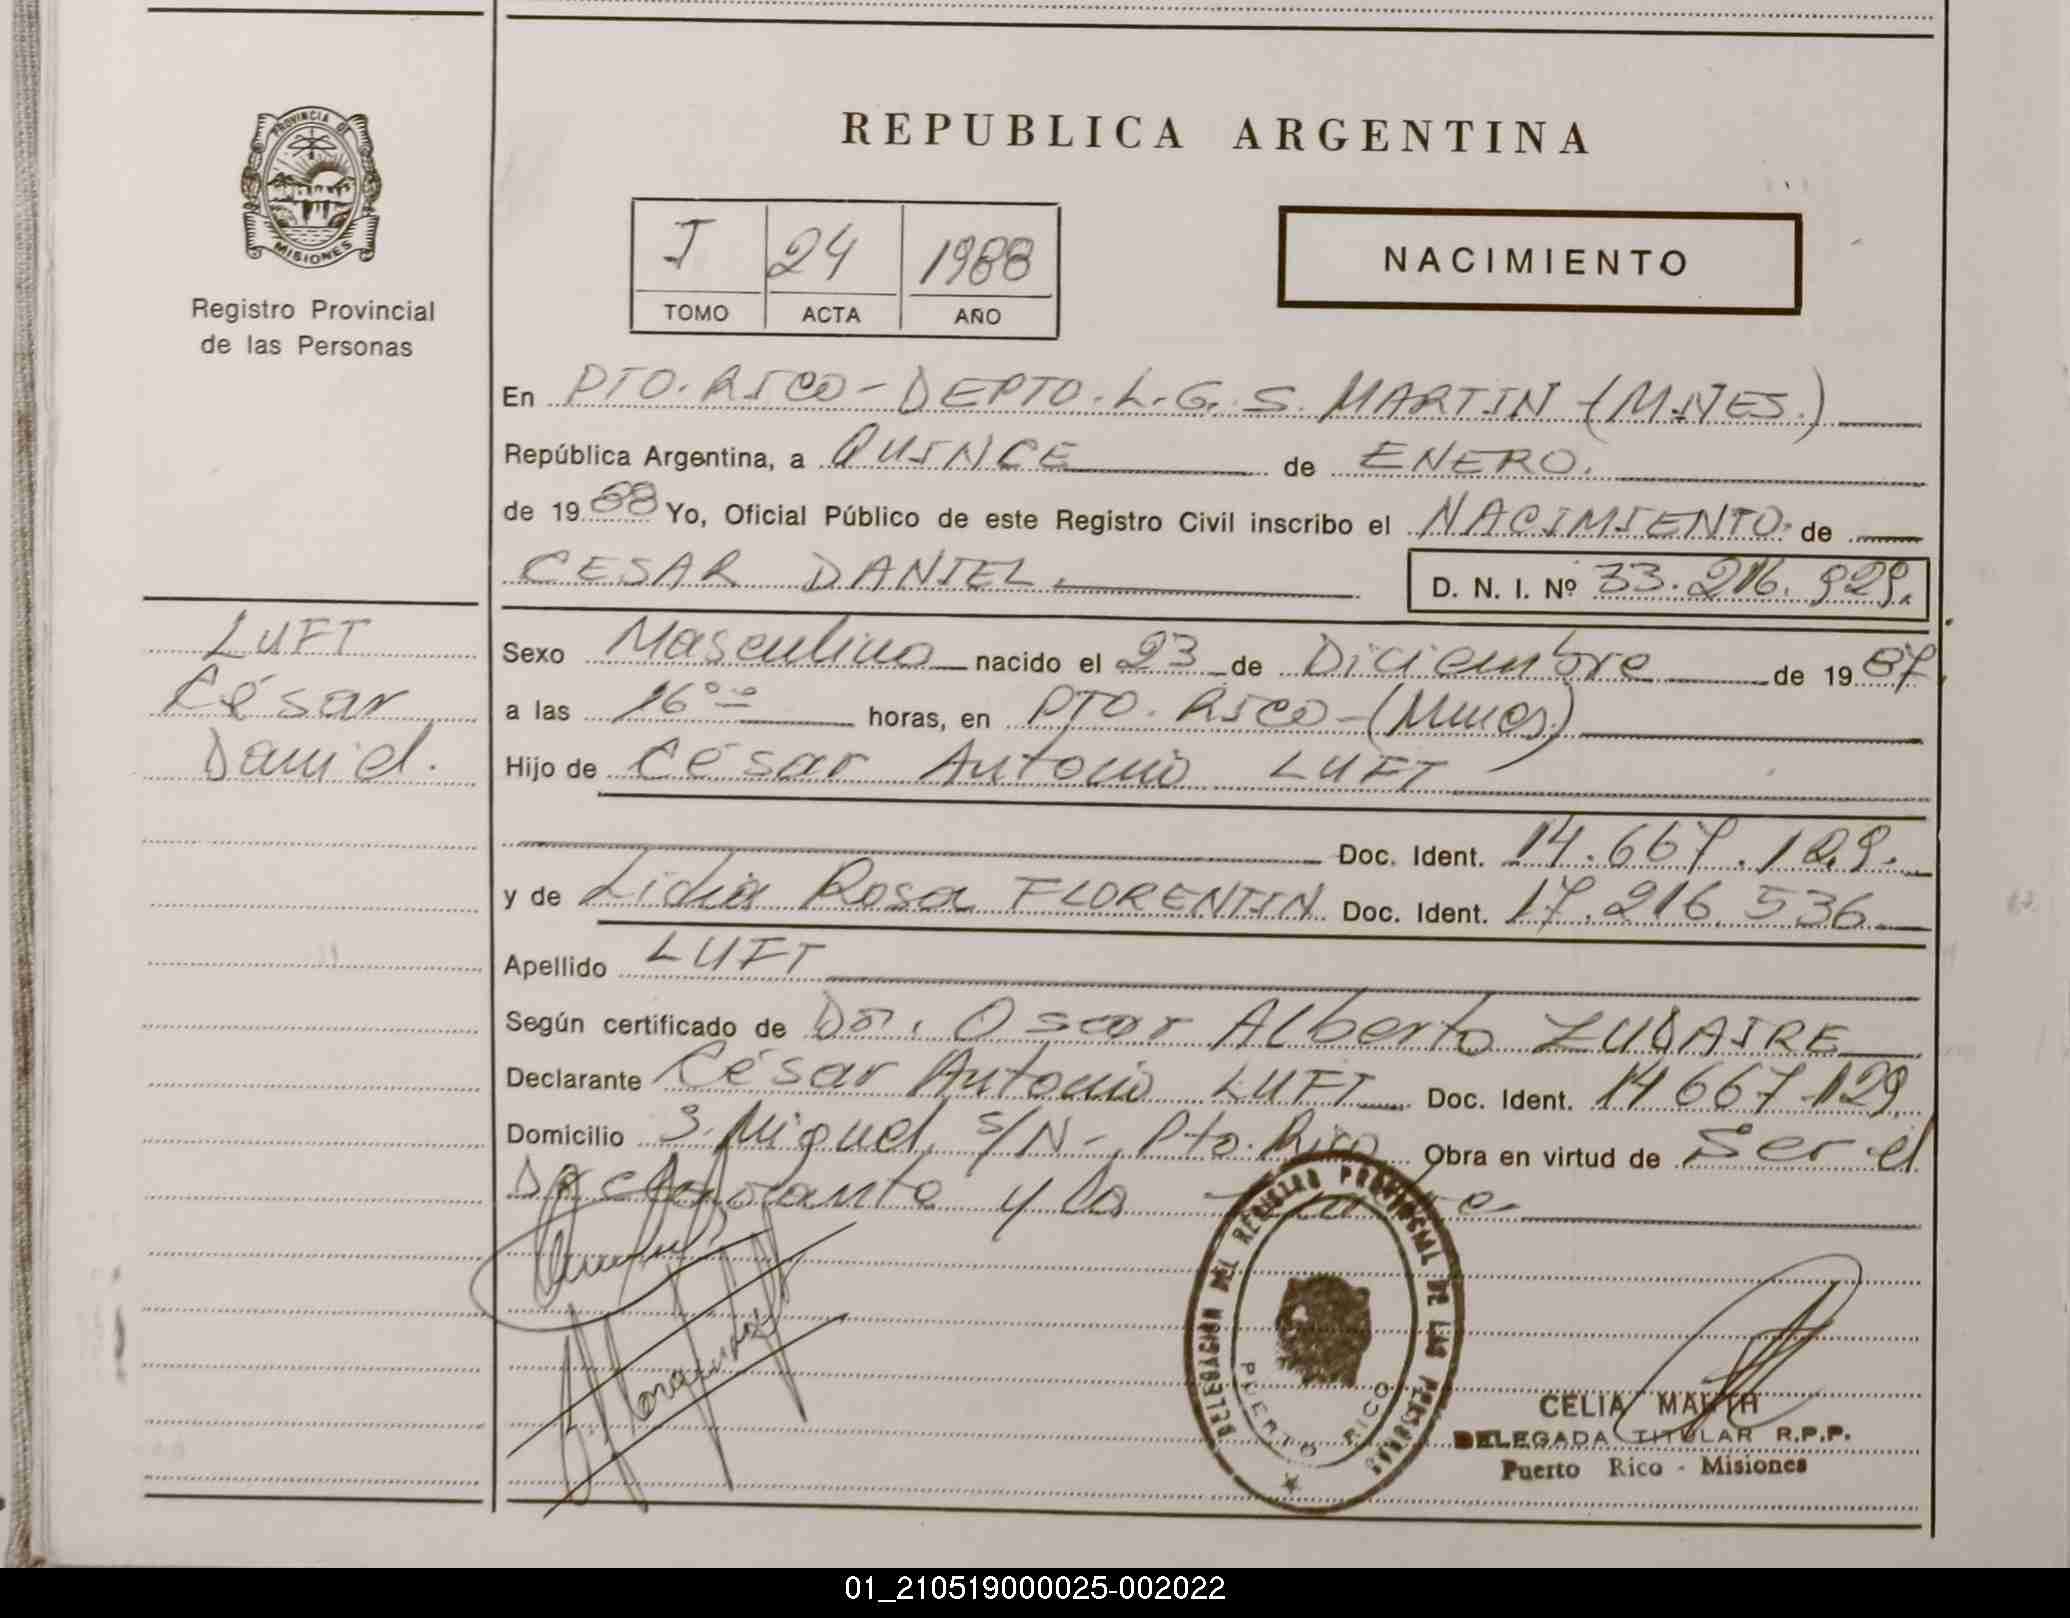 PROVINCIA DE
MISIONES
Registro Provincial
de las Personas
LUFT
César
Daniel.
REPUBLICA ARGENTINA
I 24 1988
TOMO ACTA AÑO
NACIMIENTO
En PTO. RICO - DEPTO. L. G. S. MARTIN (MNES.)
República Argentina, a QUINCE de ENERO.
de 1988 Yo, Oficial Público de este Registro Civil inscribo el NACIMIENTO de
CESAR DANIEL. D. N. I. Nº 33.216.929.
Sexo Masculino nacido el 23 de Diciembre de 1987
a las 16 horas, en PTO. RICO - (Mnes)
Hijo de César Antonio LUFT
Doc. Ident. 14.667.129.
y de Lidia Rosa FLORENTIN Doc. Ident. 17.216.536
Apellido LUFT
Según certificado de Dr. Oscar Alberto ZUDAIRE
Declarante César Antonio LUFT Doc. Ident. 14 667 129
Domicilio S. Miguel s/N - Pto. Rico Obra en virtud de Ser el
Declarante y la
DELEGACION DEL REGISTRO PROVINCIAL DE LAS PERSONAS
PUERTO RICO
CELIA MARTH
DELEGADA TITULAR R.P.P.
Puerto Rico - Misiones
01_210519000025-002022